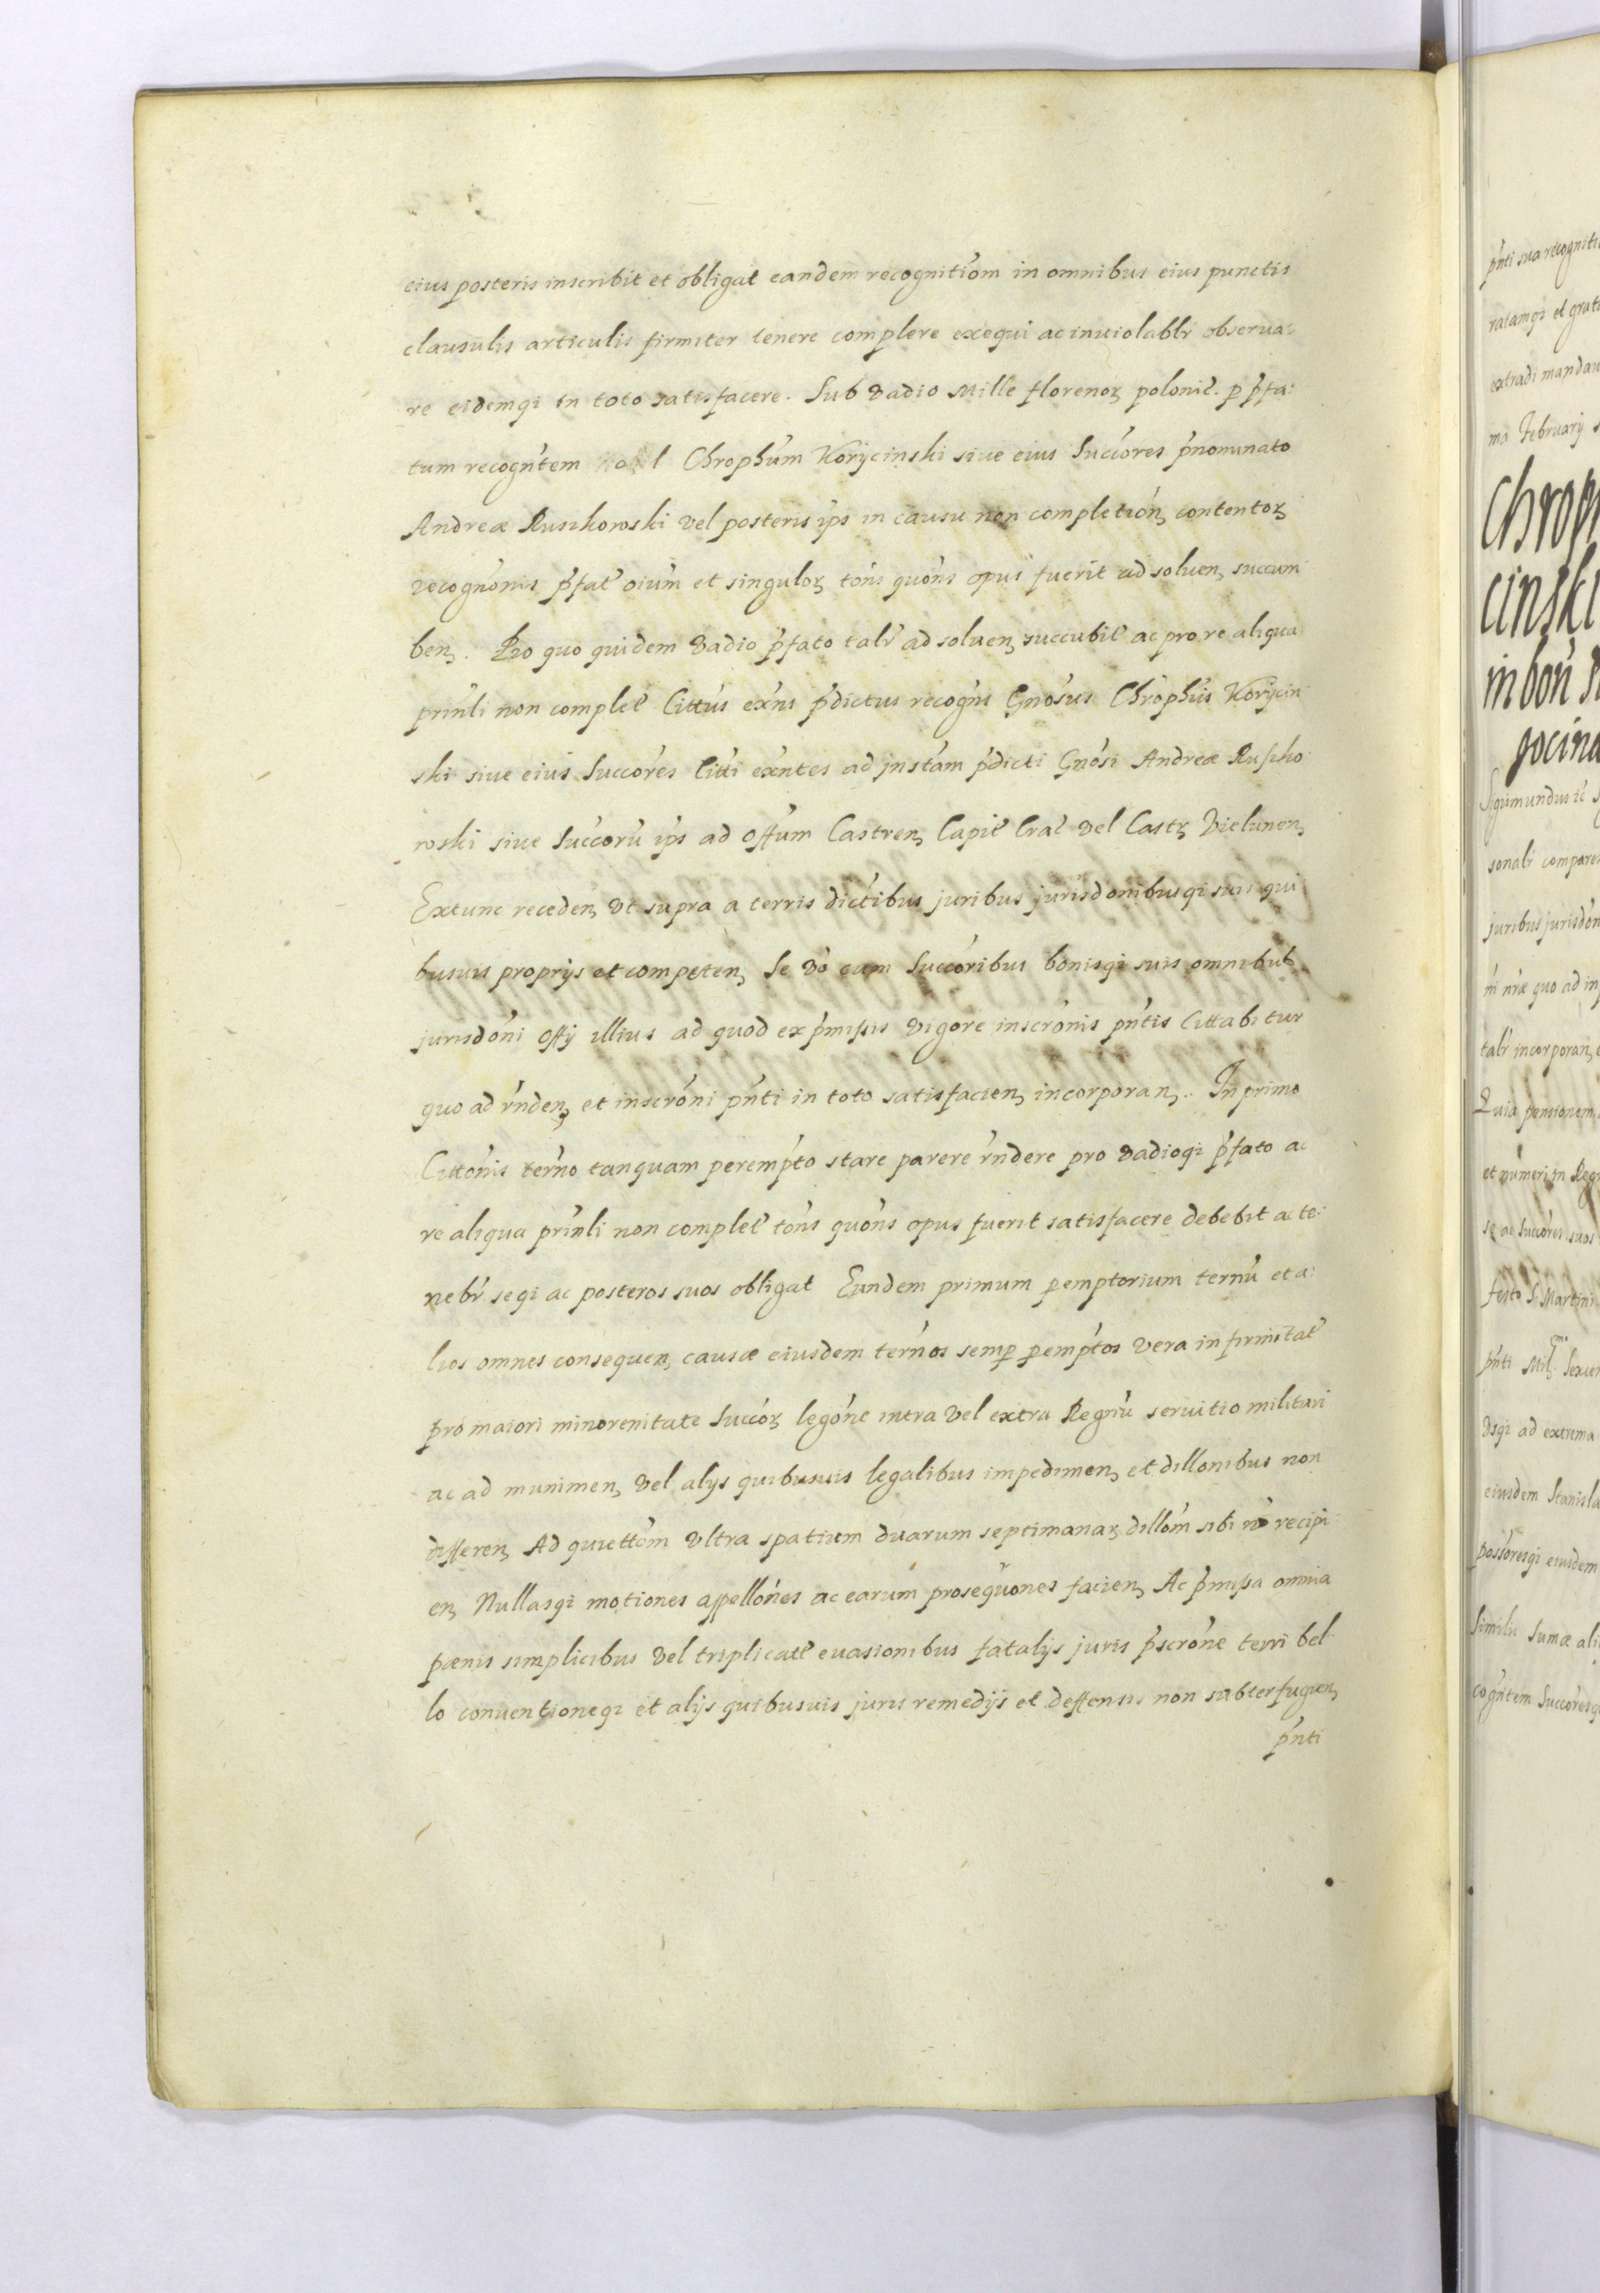 eius posteris inscribit et obligat eandem recognitiom in omnibus eius punctis
clausulis articulis firmiter tenere complere exequi ac inuiolablr observa-
re eidemqi in toto satisfacere. Sub vadio Mille florenoꝝ polonic. p pfa-
tum recogntem Chrophum Korycinski siue eius Succores pnominato
Andreæ Rusikowski vel posteris ips in causu non completion, contentoꝝ
recognonis pfat oium et singuloꝝ tons quons opus fuerit ad soluen, succum
ben,. Pro quo quidem vadio pfato talr ad soluen, succubit ac pro re aliqua
prinli non complet Cittus exns pdictus recogns Gnosus Chrophus Korycin
ski siue eius Succores Citti exntes ad jnstam pdicti Gnosi Andreæ Rusiko
wski siue Succoru ips ad Offum Castren, Capit Crac vel Castꝝ Vielunen,
Extunc receden, vt supra a terris dictibus juribus jurisdonibusqi suis qui
busuis proprijs et competen, Se vo cum Succoribus bonisqi suis omnibus
jurisdoni Offy illius ad quod ex pmissis vigore inscronis pntis Cittabitur
quo ad rnden, et inscroni pnti in toto satisfacien, incorporan,. In primo
Cittonis terno tanquam perempto stare parere rndere pro vadioqi pfato ac
re aliqua prinli non complet tons quons opus fuerit satisfacere debebit ac te-
nebr seqi ac posteros suos obligat Eundem primum pemptorium ternu et a-
lios omnes consequen, causæ eiusdem ternos semp pemptos vera infirmitat
pro maiori minorenitate Succoꝝ legone intra vel extra Regnu seruitio militari
ac ad munimen, vel alijs quibusuis legalibus impedimen, et dillonibus non
differen, Ad quiettom vltra spatium duarum septimanaꝝ dillom sibi no recipi
en, Nullasqi motiones appellones ac earum prosequones facien, Ac pmissa omnia
pænis simplicibus vel triplicat euasionibus fatalijs juris pscrone terri bel
lo conuentioneqi et alijs quibusuis juris remedijs et deffensis non subterfugien,
pnti
pnti sua recogniti
ratamqi et grat
extradi mandau
ma February
Chrop
cinski
in bon
gocina
Sigismundus
sonalr compare
juribus jurisdon
quo ad in
talr incorporan,
Quia pensionem
et numeri in Reg
se ac Succores suos
festo S. Martini
pnti
vsqi ad extrema
eiusdem Stanisla
possoresqi eiusdem
Similis Sumæ ali
cogntem Succoresq